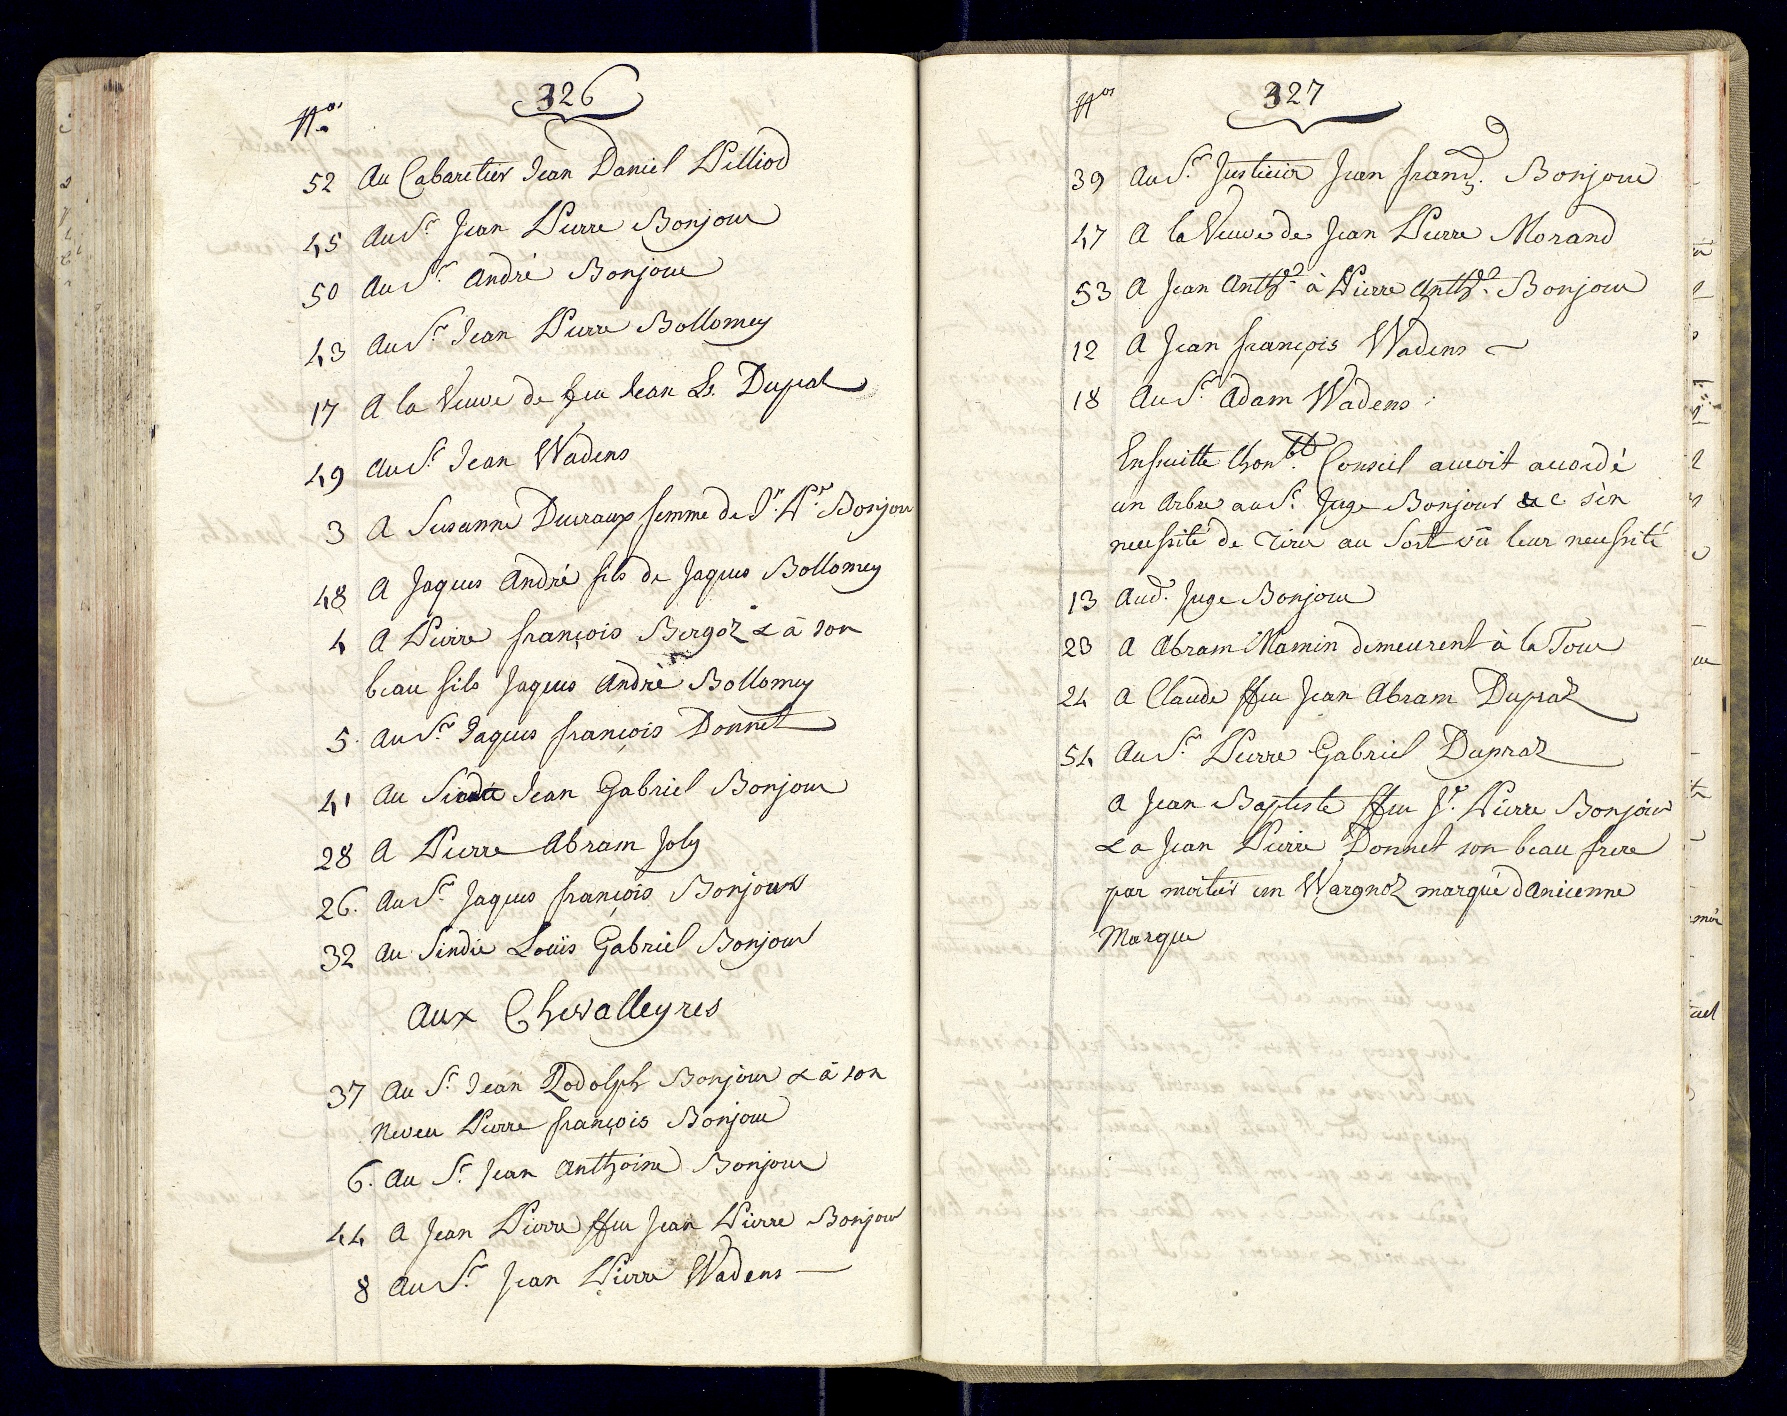 326
Nos
52 Au Cabaretier Jean Daniel Pilliod
45 Au Sr. Jean Pierre Bonjour
50 Au Sr. André Bonjour
43 Au Sr. Jean Pierre Bollomey
17 A la Veuve de feu Jean Ls. Duprat
49 Au Sr. Jean Wadens
3 A Susanne Ducraux femme de Jn. Pre. Bonjour
48 A Jaques André fils de Jaques Bollomey
4 A Pierre françois Bergoz & à son
beau fils Jaques André Bollomey
5. Au Sr. Jaques françois Donnet
41 Au Jean Gabriel Bonjour
28 A Pierre Abram Joly
26. Au Sr. Jaques françois Bonjour
32 Au Sindic Louïs Gabriel Bonjour
Aux Chevalleyres
37 Au Sr. Jean Rodolph Bonjour & à son
Neveu Pierre françois Bonjour
6. Au Sr. Jean Anthoine Bonjour
44 A Jean Pierre ffeu Jean Pierre Bonjour
8 Au Sr. Jean Pierre Wadens
327
Nos
39 Au Sr. Justicier Jean franç. Bonjour
47 A la Veuve de Jean Pierre Morand
53 A Jean Anthe. à Pierre Anthe. Bonjour
12 A Jean françois Wadens
18 Au Sr. Adam Wadens
Ensuitte lhonble. Conseil auroit accordé
un Arbre au Sr. Juge Bonjour &c s'en
necessité de tirer au Sort vû leur necessité
13 Aud. Juge Bonjour
23 A Abram Mamin demeurent à la Tour
24 A Claude ffeu Jean Abram Dupraz
54 Au Sr. Pierre Gabriel Dupraz
A Jean Baptiste ffeu Jn. Pierre Bonjour
& a Jean Pierre Donnet son beau frere
par moitié un Wargnoz marqué d'Anicenne
Marque